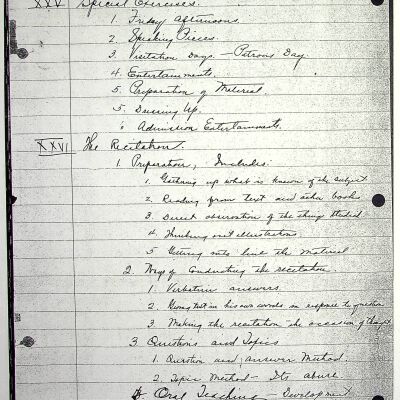 XXV Special Exercises.
1. Friday Afternoons.
2. Speaking Pieces.
3 Visitation Days. - Patrons Day
4. Entertainments.
5. Preparation of Material.
5. Dressing Up.
Admission Entertainments.
XXVI The Recitation.
1. Preparation, Includes:
1. Gathering up what is known of the subject
2. Reading from text and other books
3. Direct observation of the things studied
4. Thinking out illustrations
5 Getting into line the material
2. Ways of conducting the recitation
1. Verbatim answers.
2. Giving text in his own words in response to question
3. Making the recitation the occasion of thought
3. Questions and Topics
1. Question and answer Method.
2. Topic Method - Its abuse
Oral Teaching - Development